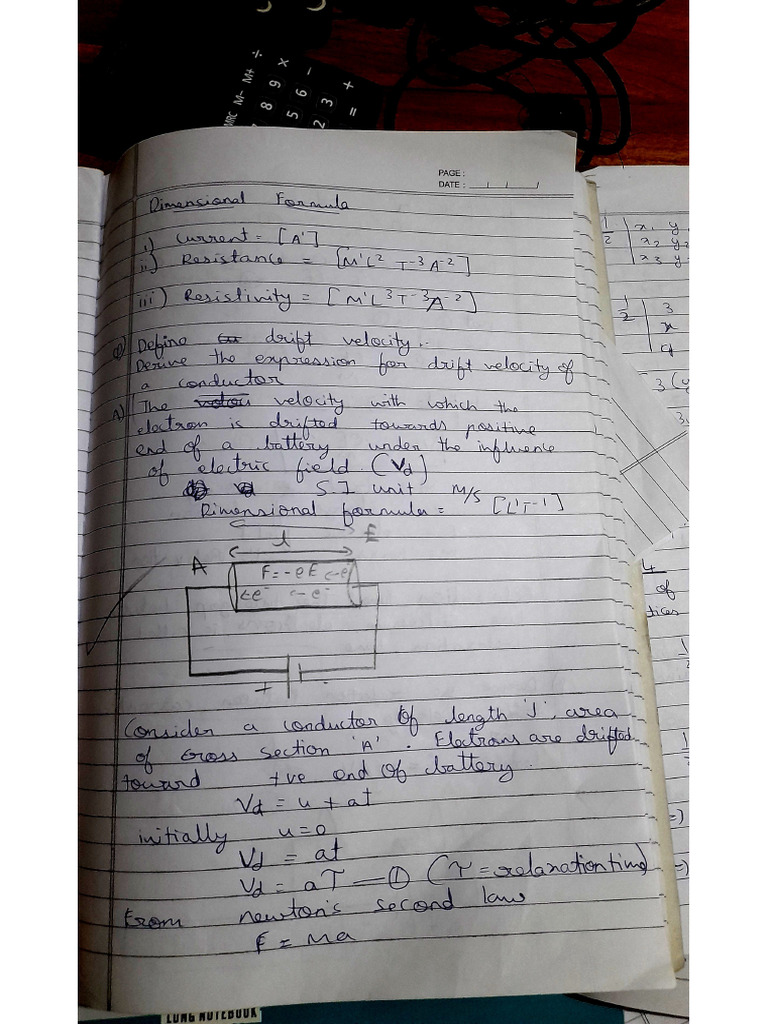 MRC M- M+ ÷
8 9 ×
5 6 -
2 3 +
=
PAGE :
DATE : / /
Dimensional Formula
i) Current = [A¹]
ii) Resistance = [M¹L² T⁻³A⁻²]
iii) Resistivity = [M¹L³T⁻³A⁻²]
Q) Define drift velocity.
Derive the expression for drift velocity of
a conductor
A) The velocity with which the
electron is drifted towards positive
end of a battery under the influence
of electric field (Vd)
S.I unit m/s
Dimensional formula = [L¹T⁻¹]
E
l
A
F = -eE ←e
←e⁻ ←e⁻
+ -
Consider a conductor of length 'l', area
of cross section 'A'. Electrons are drifted
toward +ve end of battery.
Vd = u + at
initially u = 0
Vd = at
Vd = aτ — ① (τ = relaxation time)
From newton's second law
F = ma
1/2 x₁ y
x₂ y₂
x₃ y
1/2 3
x
9
3 (y
3
4
of
tices
1
1
=)
=)
LONG NOTEBOOK